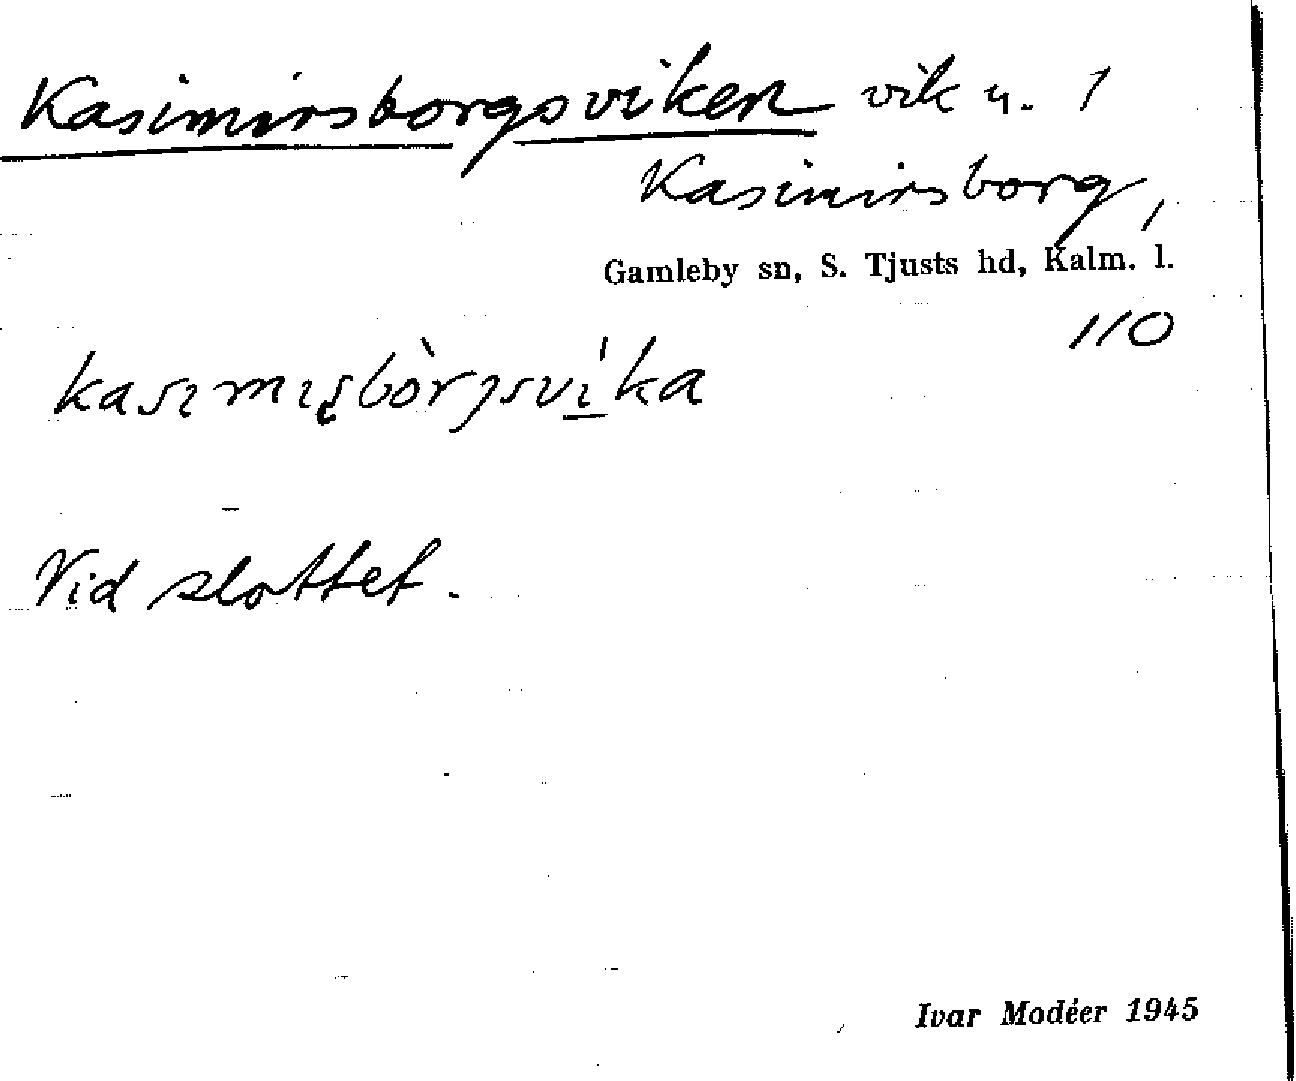 Kasimirsborgsviken vik u. 1
Kasimirsborg,
Gamleby sn, S. Tjusts hd, Kalm. l.
110
Vid slottet.
Ivar Modéer 1945